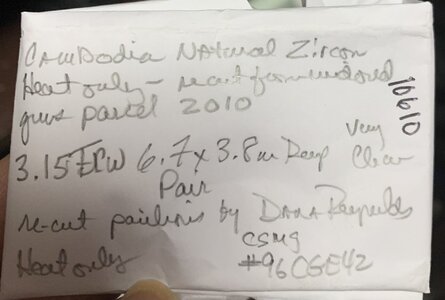 Cambodia Natural Zircon
Heat only - recut from
guys parcel 2010
10610
3.15 TCW 6.7 x 3.8m Deep
Very Clear
Pair
re-cut pavilions by Dana Reynolds
CSMG
Heat only
#96CGE42